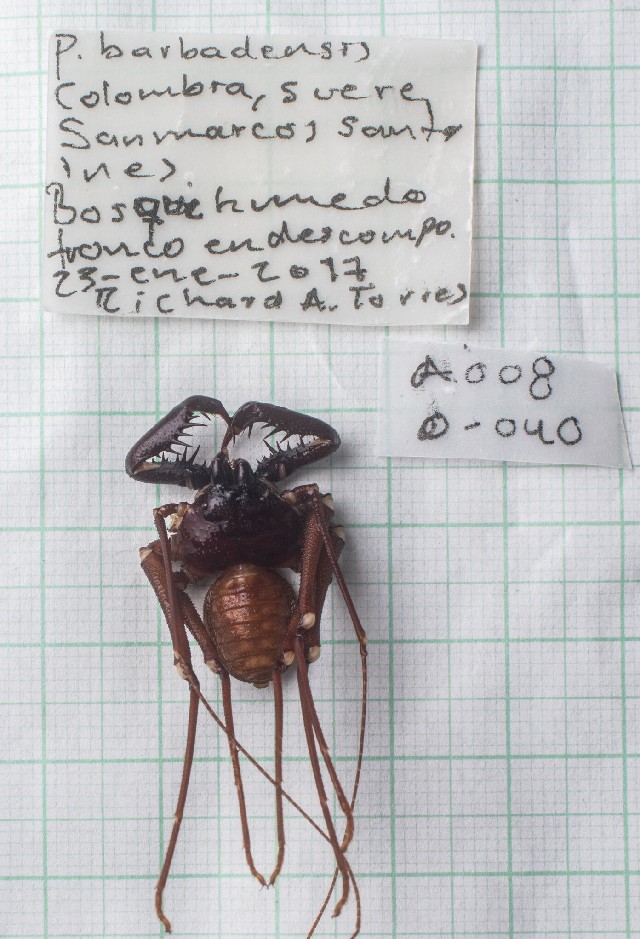 P. barbadensis
Colombia, sucre,
San marcos santa
ines.
Bosque humedo
tronco en descompo.
23-ene-2017
Richard A. Torres
A008
D-040